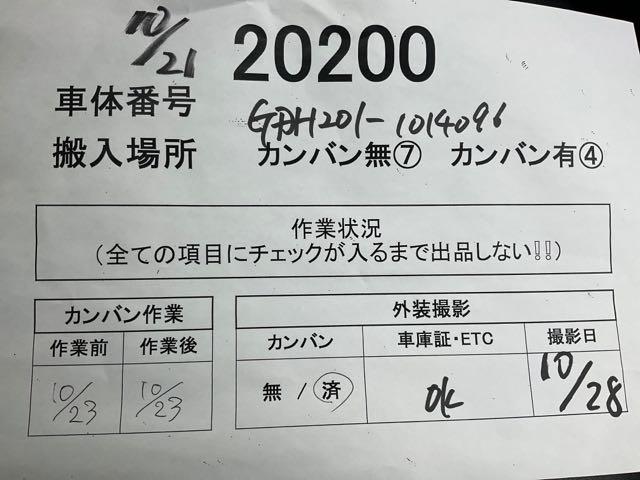 10/21 20200
車体番号 GDH201-1014096
搬入場所 カンバン無⑦ カンバン有④
作業状況
(全ての項目にチェックが入るまで出品しない!!)
カンバン作業 外装撮影
作業前 作業後 カンバン 車庫証・ETC 撮影日
10/23 10/23 無 / 済 ok 10/28